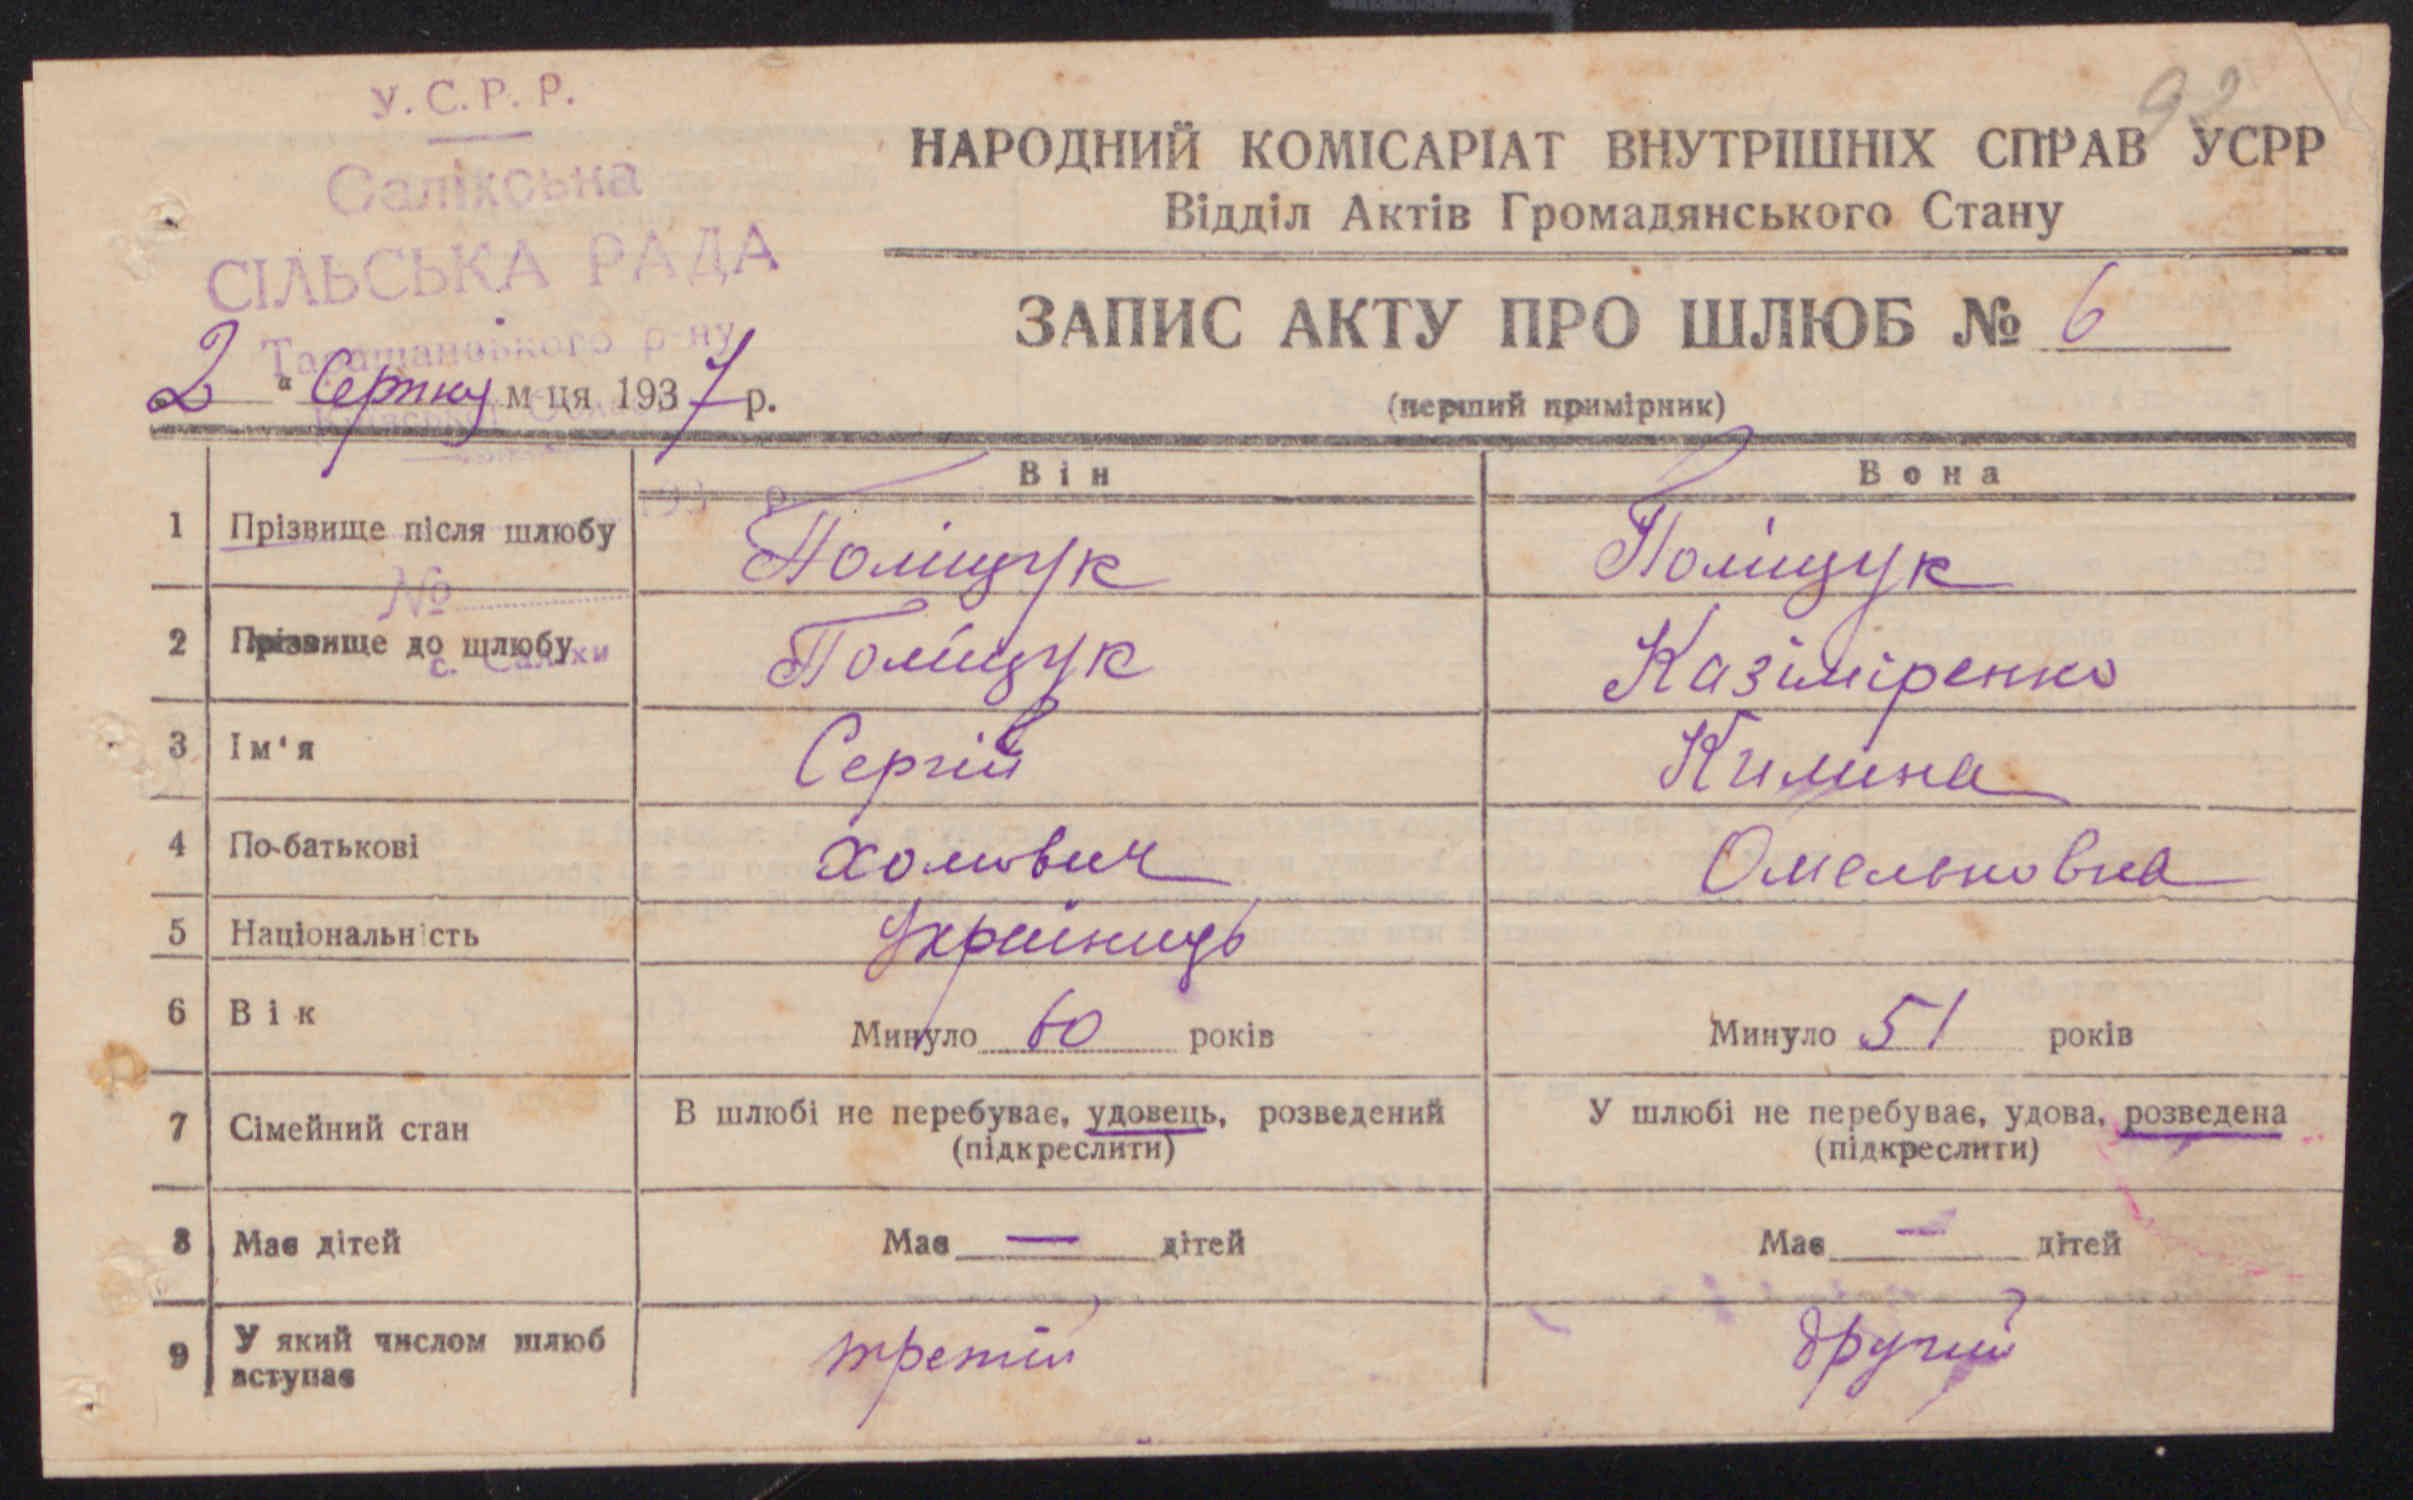 92
У.С.Р.Р.
Саліхська
СІЛЬСЬКА РАДА
Таращанського р-ну
НАРОДНИЙ КОМІСАРІАТ ВНУТРІШНІХ СПРАВ УСРР
Відділ Актів Громадянського Стану
ЗАПИС АКТУ ПРО ШЛЮБ № 6
(перший примірник)
2 " Серпня м-ця 1937 р.
193 р.
Він Вона
1 Прізвище після шлюбу Поліщук Поліщук
№
2 Прізвище до шлюбу Поліщук Казіміренко
с. Саліхи
3 Ім'я Сергій Килина
4 По-батькові Хомович Омельковна
5 Національність Українець
6 Вік Минуло 60 років Минуло 51 років
7 Сімейний стан В шлюбі не перебуває, удовець, розведений У шлюбі не перебуває, удова, розведена
(підкреслити) (підкреслити)
8 Має дітей Має — дітей Має — дітей
9 У який числом шлюб вступає третій другий